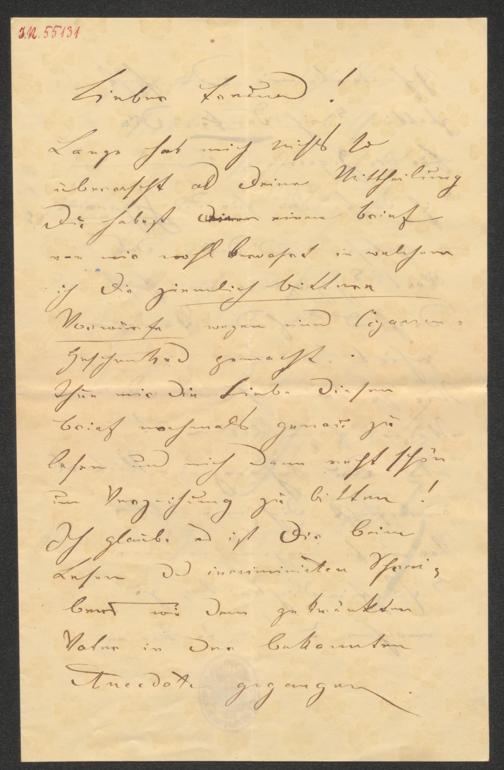 J.N. 55131
Lieber Freund!
Lange hat mich nichts so
überrascht als Deine Mittheilung
Du habest einen Brief
von mir wohl bewahrt in welchem
ich Dir ziemlich bittere
Vorwürfe wegen eines Cigarren-
Geschenkes gemacht.
Thue mir die Liebe diesen
Brief nochmals genau zu
lesen und mich dann recht schön
um Verzeihung zu bitten!
Ich glaube es ist Dir beim
Lesen des incriminirten Schrei-
bens wie dem gekränkten
Vater in der bekannten
Anecdote gegangen.